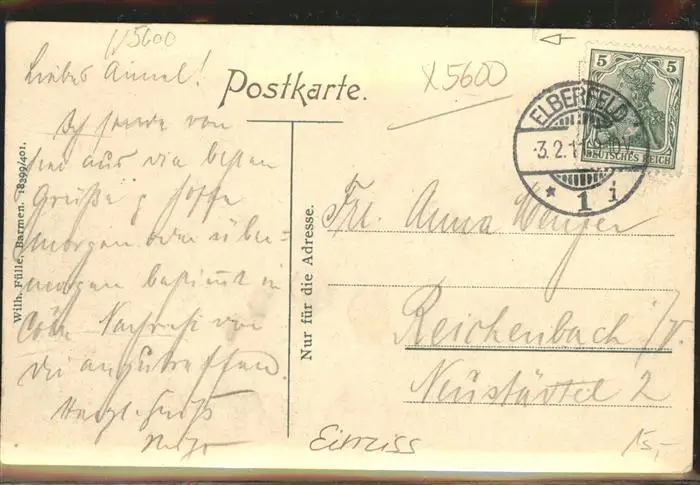 x5600
Postkarte.
x5600
5 5
DEUTSCHES REICH
ELBERFELD
3.2.1
1 i
Wilh. Fülle, Barmen. 18399/401.
Nur für die Adresse.
Liebes Annel!
Ich sende von
hier aus die besten
Grüße & hoffe
morgen oder über-
morgen bestimmt in
Cöln Nachricht von
dir anzutreffen.
Herzl. Gruß
Frl. Anna Wenger
Reichenbach i/V.
Neustädtel 2
Einriss
15,-